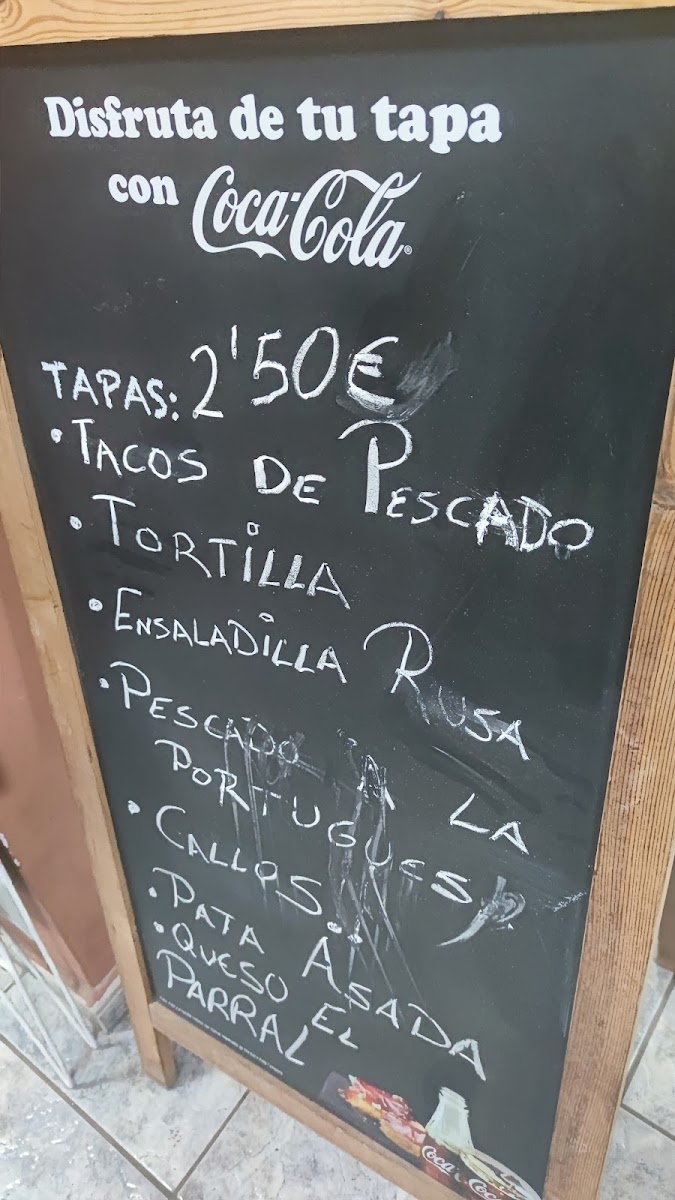 Disfruta de tu tapa
con Coca-Cola
TAPAS: 2'50€
• TACOS DE PESCADO
• TORTILLA
• ENSALADILLA RUSA
• PESCADO A LA
PORTUGUESA
• CALLOS
• PATA ASADA
• QUESO EL
PARRAL
Coca-Cola